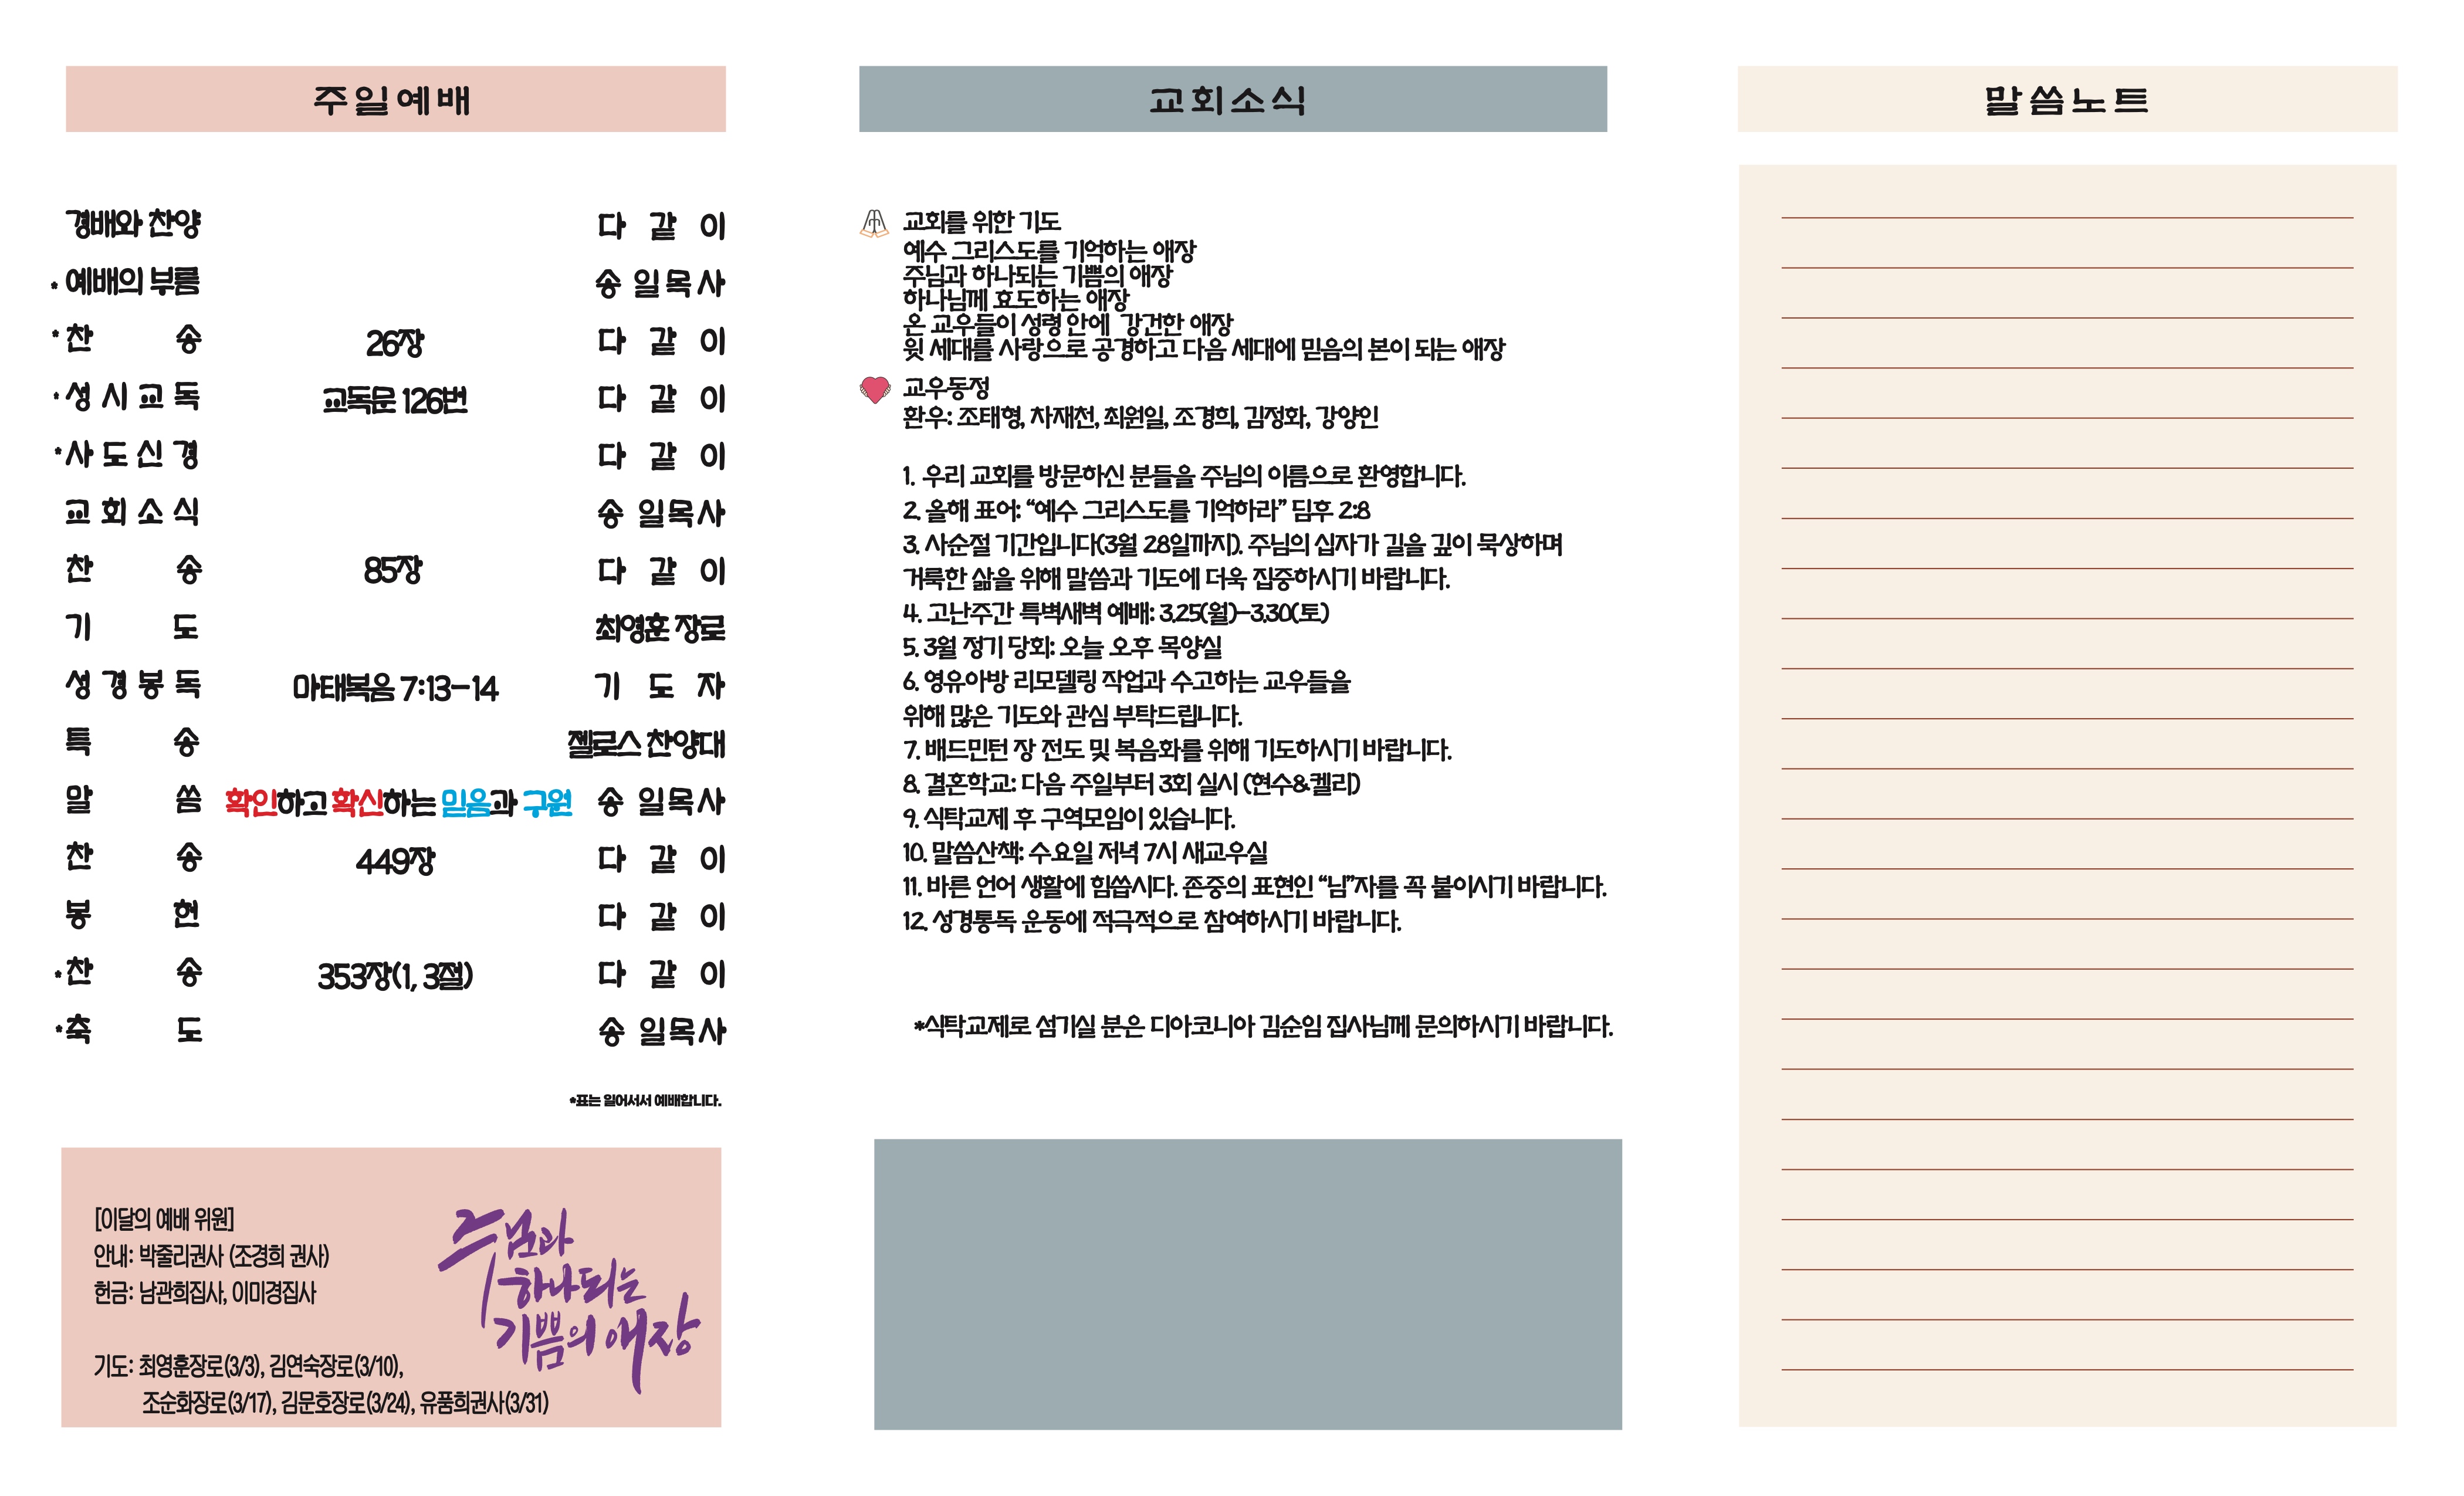 주일예배
경배와 찬양 다 같 이
* 예배의 부름 송 일 목 사
* 찬 송 26장 다 같 이
* 성 시 교 독 교독문 126번 다 같 이
* 사 도 신 경 다 같 이
교 회 소 식 송 일 목 사
찬 송 85장 다 같 이
기 도 최영훈 장로
성 경 봉 독 마태복음 7:13-14 기 도 자
특 송 젤로스 찬양대
말 씀 확인하고 확신하는 믿음과 구원 송 일 목 사
찬 송 449장 다 같 이
봉 헌 다 같 이
* 찬 송 353장(1, 3절) 다 같 이
* 축 도 송 일 목 사
*표는 일어서서 예배합니다.
[이달의 예배 위원]
안내: 박줄리권사 (조경희 권사)
헌금: 남관희집사, 이미경집사
기도: 최영훈장로(3/3), 김연숙장로(3/10),
조순화장로(3/17), 김문호장로(3/24), 유품희권사(3/31)
주님과
하나되는
기쁨의 애장
교회소식
교회를 위한 기도
예수 그리스도를 기억하는 애장
주님과 하나되는 기쁨의 애장
하나님께 효도하는 애장
온 교우들이 성령 안에 강건한 애장
윗 세대를 사랑으로 공경하고 다음 세대에 믿음의 본이 되는 애장
교우동정
환우: 조태형, 차재천, 최원일, 조경희, 김정화, 강양인
1. 우리 교회를 방문하신 분들을 주님의 이름으로 환영합니다.
2. 올해 표어: “예수 그리스도를 기억하라” 딤후 2:8
3. 사순절 기간입니다(3월 28일까지). 주님의 십자가 길을 깊이 묵상하며
거룩한 삶을 위해 말씀과 기도에 더욱 집중하시기 바랍니다.
4. 고난주간 특벽새벽 예배: 3.25(월)-3.30(토)
5. 3월 정기 당회: 오늘 오후 목양실
6. 영유아방 리모델링 작업과 수고하는 교우들을
위해 많은 기도와 관심 부탁드립니다.
7. 배드민턴 장 전도 및 복음화를 위해 기도하시기 바랍니다.
8. 결혼학교: 다음 주일부터 3회 실시 (현수&켈리)
9. 식탁교제 후 구역모임이 있습니다.
10. 말씀산책: 수요일 저녁 7시 새교우실
11. 바른 언어 생활에 힘씁시다. 존중의 표현인 “님”자를 꼭 붙이시기 바랍니다.
12. 성경통독 운동에 적극적으로 참여하시기 바랍니다.
*식탁교제로 섬기실 분은 디아코니아 김순임 집사님께 문의하시기 바랍니다.
말씀노트